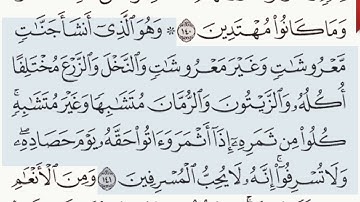 وَمَا كَانُوا۟ مُهْتَدِينَ ١٤٠ ۞ وَهُوَ ٱلَّذِىٓ أَنشَأَ جَنَّـٰتٍ
مَّعْرُوشَـٰتٍ وَغَيْرَ مَعْرُوشَـٰتٍ وَٱلنَّخْلَ وَٱلزَّرْعَ مُخْتَلِفًا
أُكُلُهُۥ وَٱلزَّيْتُونَ وَٱلرُّمَّانَ مُتَشَـٰبِهًا وَغَيْرَ مُتَشَـٰبِهٍ ۚ
كُلُوا۟ مِن ثَمَرِهِۦٓ إِذَآ أَثْمَرَ وَءَاتُوا۟ حَقَّهُۥ يَوْمَ حَصَادِهِۦ ۖ
وَلَا تُسْرِفُوٓا۟ ۚ إِنَّهُۥ لَا يُحِبُّ ٱلْمُسْرِفِينَ ١٤١ وَمِنَ ٱلْأَنْعَـٰمِ